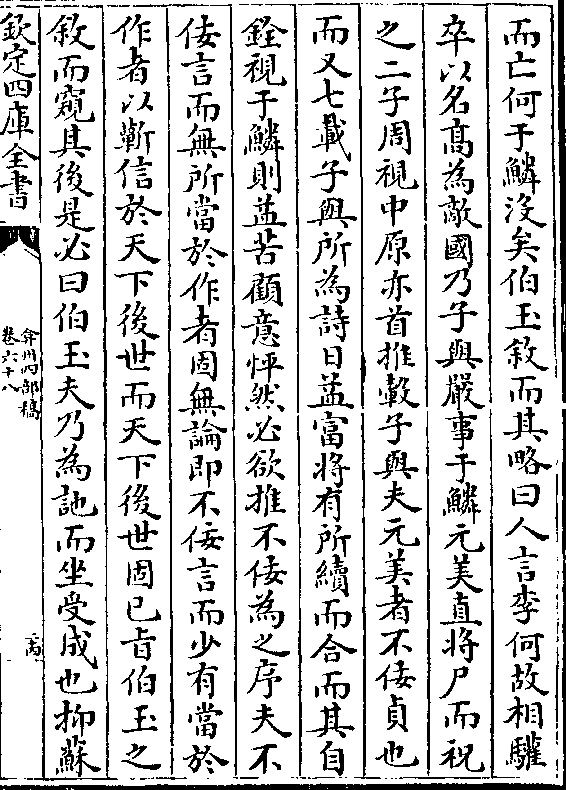 而亡何于鱗沒矣伯玉敘而其略曰人言李何故相驩
卒以名高為敵國乃子與嚴事于鱗元美直將尸而祝
之二子周視中原亦首推轂子與夫元美者不佞貞也
而又七載子與所為詩日益富將有所續而合而其自
銓視于鱗則益苦顧意怦然必欲推不佞為之序夫不
佞言而無所當於作者固無論即不佞言而少有當於
作者以蘄信於天下後世而天下後世固已旨伯玉之
敘而窺其後是必曰伯玉夫乃為訑而坐受成也抑蘇
欽定四庫全書
弇州四部稿
卷六十八